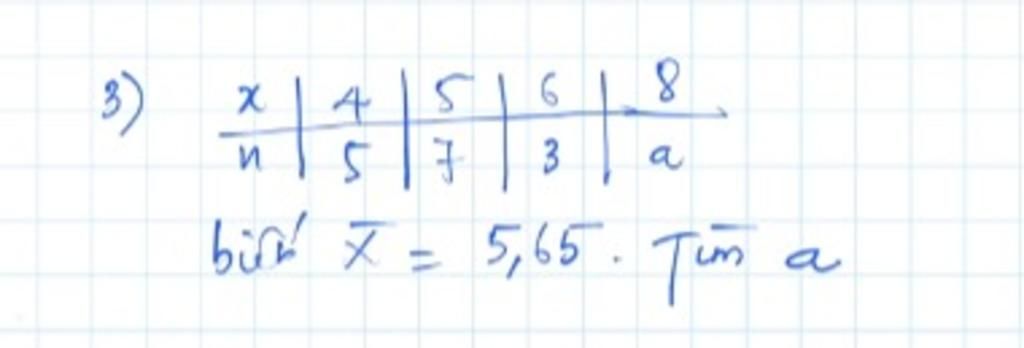 3) x | 4 | 5 | 6 | 8
n | 5 | 7 | 3 | a
biết x̄ = 5,65. Tìm a